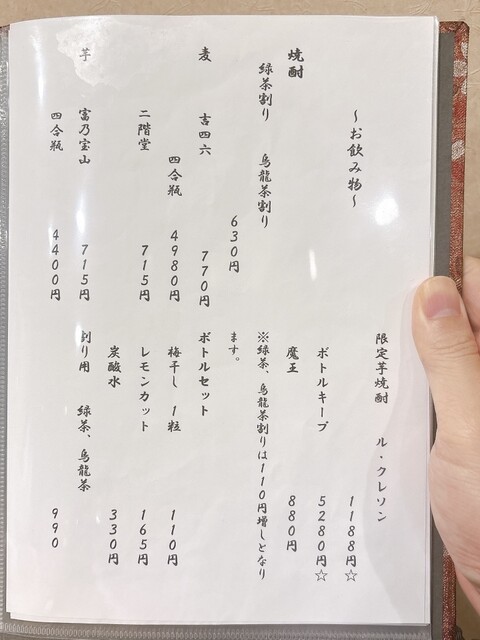 ～お飲み物～
焼酎
緑茶割り　烏龍茶割り
630円
麦　吉四六　770円
四合瓶　4980円
二階堂　715円
芋　富乃宝山　715円
四合瓶　4400円
限定芋焼酎　ル・クレソン
1188円☆
ボトルキープ　5280円☆
魔王　880円
※緑茶、烏龍茶割りは110円増しとなり
ます。
ボトルセット
梅干し　1粒　110円
レモンカット　165円
炭酸水　330円
割り用　緑茶、烏龍茶
990